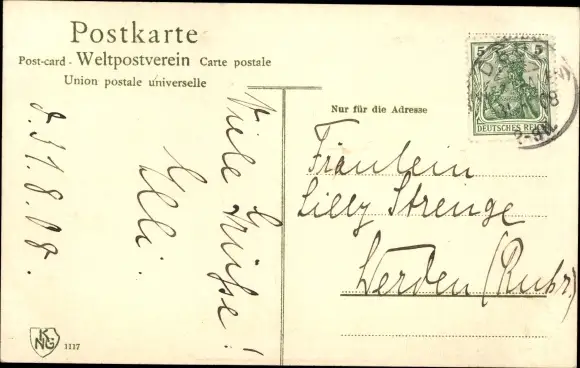 Postkarte
Post-card - Weltpostverein Carte postale
Union postale universelle
Nur für die Adresse
5 5
DEUTSCHES REICH
d. 31.8.08.
Viele Grüße!
Elli.
Fräulein
Lilly Strenge
Werden (Ruhr)
KNG
1117